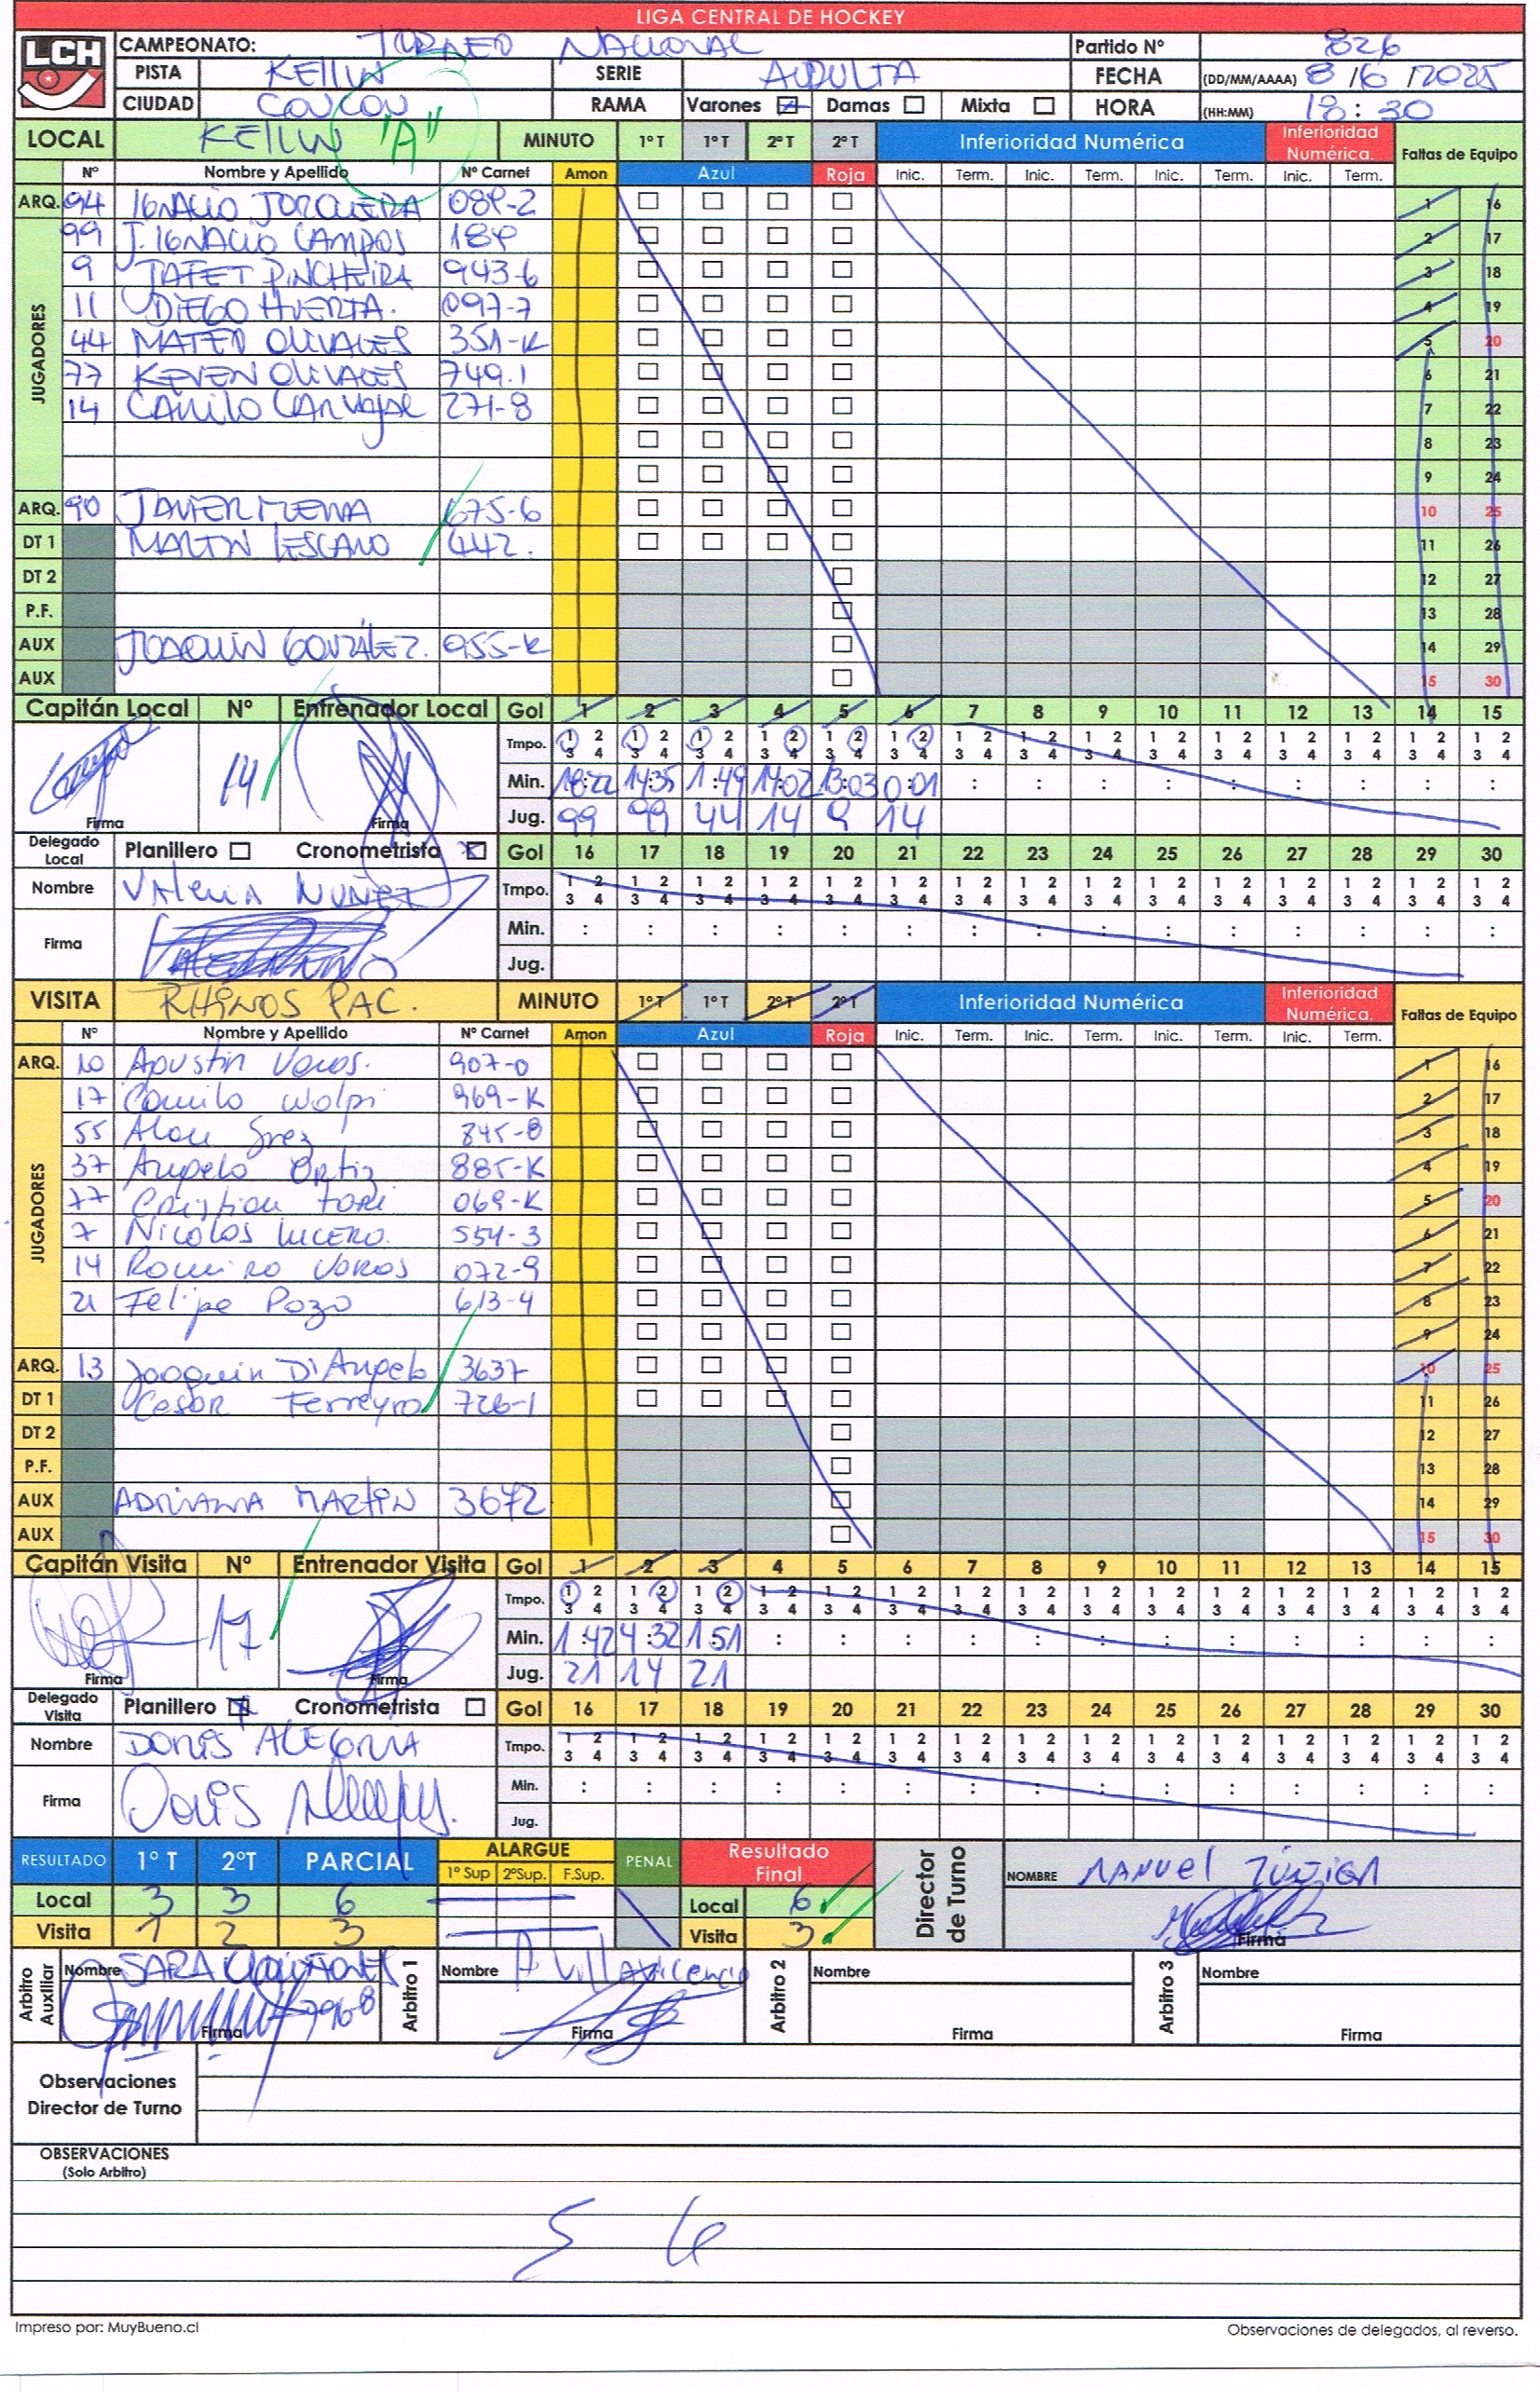 LIGA CENTRAL DE HOCKEY
LCH
CAMPEONATO: TORNEO NACIONAL Partido Nº 826
PISTA KEILIN SERIE ADULTA FECHA (DD/MM/AAAA) 8/6/2025
CIUDAD CONCON RAMA Varones Damas Mixta HORA (HH:MM) 18:30
LOCAL KEILIN "A" MINUTO 1º T 1º T 2º T 2º T Inferioridad Numérica Inferioridad Numérica. Faltas de Equipo
Nº Nombre y Apellido Nº Carnet Amon Azul Roja Inic. Term. Inic. Term. Inic. Term. Inic. Term.
ARQ. 94 IGNACIO JORQUERA 089-2 1 16
JUGADORES
99 J. IGNACIO CAMPOS 189 2 17
9 JAFET PINCHEIRA 943-6 3 18
11 DIEGO HUERTA. 097-7 4 19
44 MATEO OLIVARES 351-K 5 20
77 KEVEN OLIVARES 749.1 6 21
14 CAMILO CARVAJAL 271-8 7 22
8 23
9 24
ARQ. 90 JAVIER MENA 675-6 10 25
DT 1 MARTIN LESCANO 442. 11 26
DT 2 12 27
P.F. 13 28
AUX JOAQUIN GONZÁLEZ. 955-K 14 29
AUX 15 30
Capitán Local Nº Entrenador Local Gol 1 2 3 4 5 6 7 8 9 10 11 12 13 14 15
Tmpo. 1 2 3 4 1 2 3 4 1 2 3 4 1 2 3 4 1 2 3 4 1 2 3 4 1 2 3 4 1 2 3 4 1 2 3 4 1 2 3 4 1 2 3 4 1 2 3 4 1 2 3 4 1 2 3 4 1 2 3 4
14 Min. 18:22 14:35 1:49 14:02 13:03 0:01 : : : : : : : : :
Firma Firma Jug. 99 99 44 14 9 14
Delegado Local Planillero Cronometrista Gol 16 17 18 19 20 21 22 23 24 25 26 27 28 29 30
Nombre VAleria NUÑEZ Tmpo. 1 2 3 4 1 2 3 4 1 2 3 4 1 2 3 4 1 2 3 4 1 2 3 4 1 2 3 4 1 2 3 4 1 2 3 4 1 2 3 4 1 2 3 4 1 2 3 4 1 2 3 4 1 2 3 4 1 2 3 4
Firma Min. : : : : : : : : : : : : : : :
Jug.
VISITA RHINOS PAC. MINUTO 1º T 1º T 2º T 2º T Inferioridad Numérica Inferioridad Numérica. Faltas de Equipo
Nº Nombre y Apellido Nº Carnet Amon Azul Roja Inic. Term. Inic. Term. Inic. Term. Inic. Term.
ARQ. 10 Agustin Varas. 907-0 1 16
JUGADORES
17 Camilo Wolpi 969-K 2 17
55 Alan Grez 845-8 3 18
37 Angelo Ortiz 885-K 4 19
77 Cristian Fari 069-K 5 20
7 Nicolas Lucero. 554-3 6 21
14 Romiro Varas 072-9 7 22
21 Felipe Pozo 613-4 8 23
9 24
ARQ. 13 Joaquin D'Angelo 3637 10 25
DT 1 Cesar Ferreyra 726-1 11 26
DT 2 12 27
P.F. 13 28
AUX ADRIANA MARTIN 3672 14 29
AUX 15 30
Capitán Visita Nº Entrenador Visita Gol 1 2 3 4 5 6 7 8 9 10 11 12 13 14 15
Tmpo. 1 2 3 4 1 2 3 4 1 2 3 4 1 2 3 4 1 2 3 4 1 2 3 4 1 2 3 4 1 2 3 4 1 2 3 4 1 2 3 4 1 2 3 4 1 2 3 4 1 2 3 4 1 2 3 4 1 2 3 4
17 Min. 1:42 4:32 1:51 : : : : : : : : : : : :
Firma Firma Jug. 21 14 21
Delegado Visita Planillero Cronometrista Gol 16 17 18 19 20 21 22 23 24 25 26 27 28 29 30
Nombre DORIS ALEGRIA Tmpo. 1 2 3 4 1 2 3 4 1 2 3 4 1 2 3 4 1 2 3 4 1 2 3 4 1 2 3 4 1 2 3 4 1 2 3 4 1 2 3 4 1 2 3 4 1 2 3 4 1 2 3 4 1 2 3 4 1 2 3 4
Firma Doris Min. : : : : : : : : : : : : : : :
Jug.
RESULTADO 1º T 2ºT PARCIAL ALARGUE 1º Sup 2ºSup. F.Sup. PENAL Resultado Final Director de Turno NOMBRE MANUEL ZÚÑIGA
Local 3 3 6 Local 6
Visita 1 2 3 Visita 3 Firma
Arbitro Auxiliar Nombre SARA QUIÑONES Arbitro 1 Nombre P. Villavicencio Arbitro 2 Nombre Arbitro 3 Nombre
796-8 Firma Firma Firma Firma
Observaciones
Director de Turno
OBSERVACIONES
(Solo Arbitro)
Impreso por: MuyBueno.cl Observaciones de delegados, al reverso.